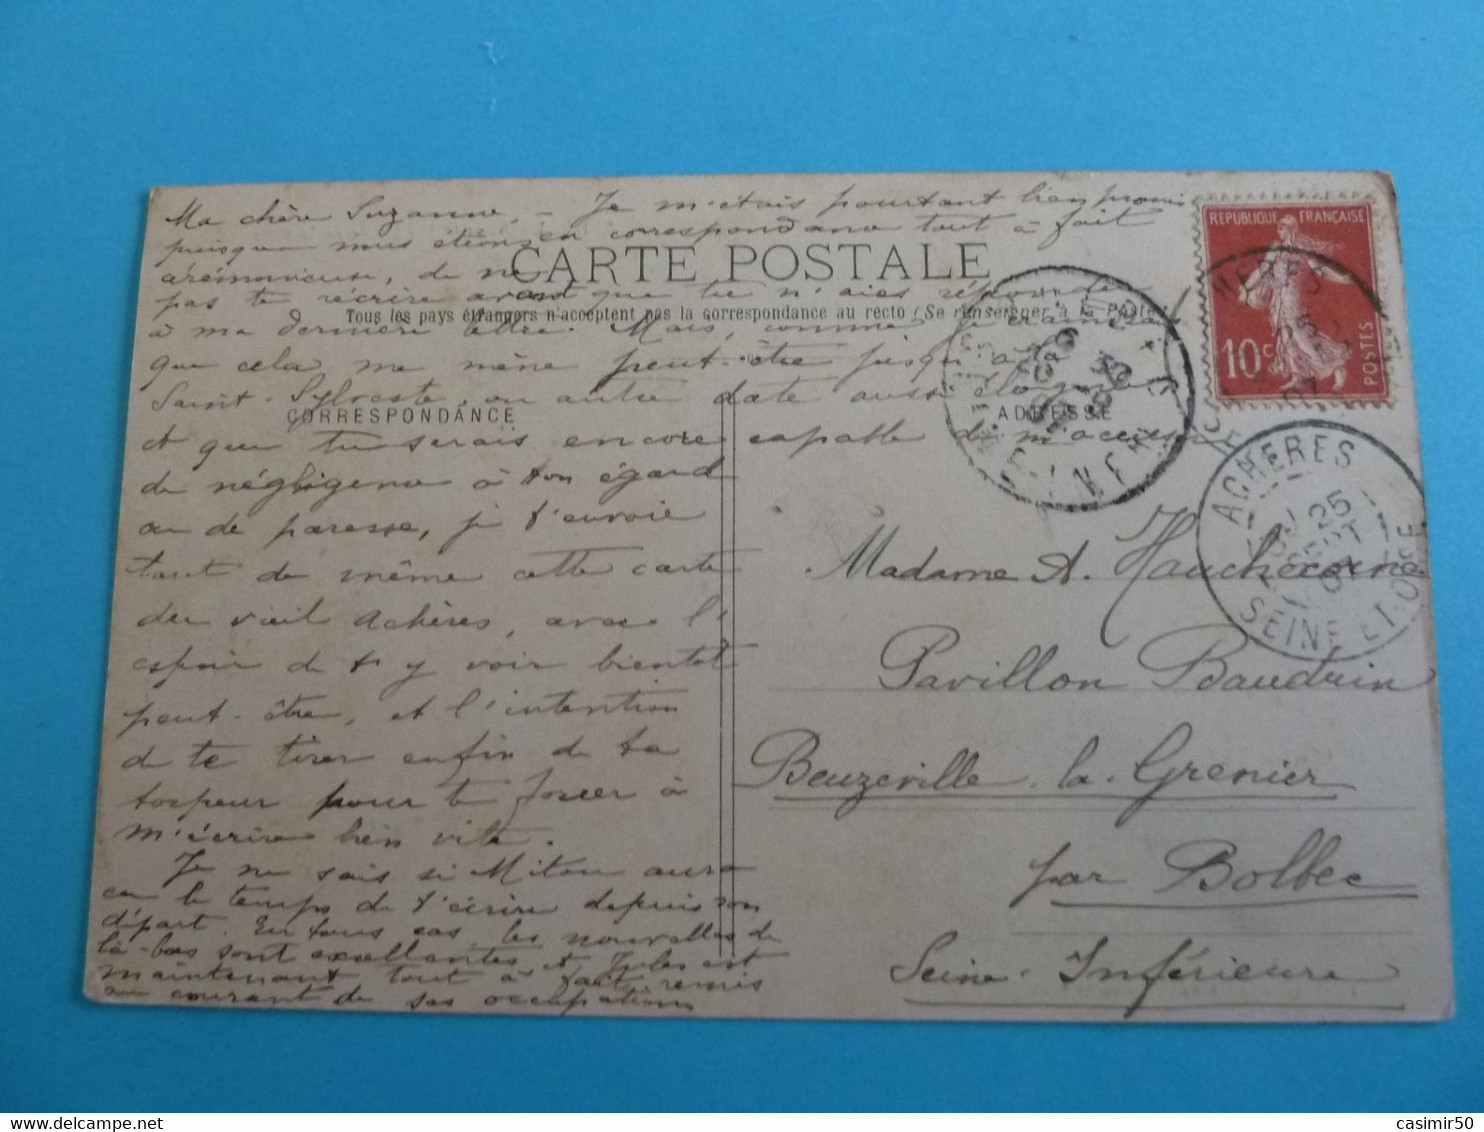 Ma chère Suzanne, - Je m'étais pourtant bien promis
puisque nous étions en correspondance tout à fait
cérémonieuse, de ne
CARTE POSTALE
pas te récrire avant que tu n'aies répondu
Tous les pays étrangers n'acceptent pas la correspondance au recto (Se renseigner à la Poste)
à ma dernière lettre. Mais, comme je crains
que cela me mène peut-être jusqu'à la
Saint-Sylvestre, ou autre date aussi éloignée
CORRESPONDANCE
ADRESSE
et que tu serais encore capable de m'accuser
de négligence à ton égard
ou de paresse, je t'envoie
tout de même cette carte
du vieil Achères, avec l'
espoir de t'y voir bientôt
peut-être, et l'intention
de te tirer enfin de ta
torpeur pour te forcer à
m'écrire bien vite.
Je ne sais si Miton aura
eu le temps de t'écrire depuis son
départ. En tous cas, les nouvelles de
là-bas sont excellentes et Jules est
maintenant tout à fait remis
au courant de ses occupations
REPUBLIQUE FRANÇAISE
10 c
POSTES
ACHERES
25
SEPT
07
SEINE-ET-OISE
Madame A. Hauchecorne
Pavillon Baudouin
Beuzeville-la-Grenier
par Bolbec
Seine-Inférieure
casimir50